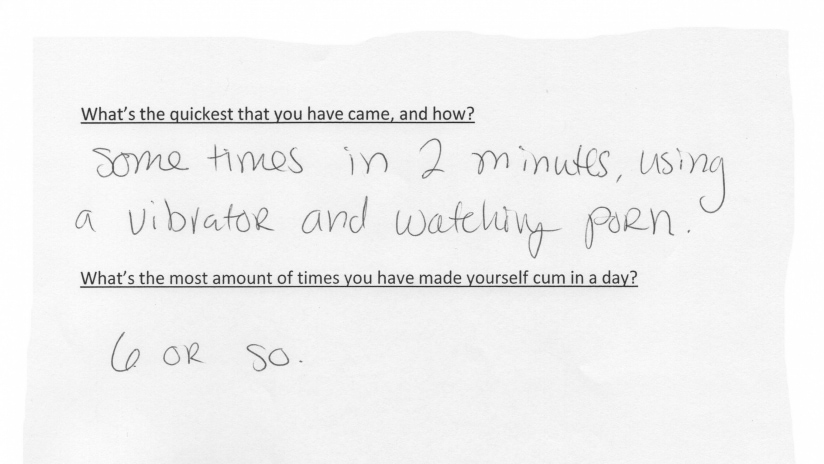 What's the quickest that you have came, and how?
Some times in 2 minutes, using
a vibrator and watching porn.
What's the most amount of times you have made yourself cum in a day?
6 or so.